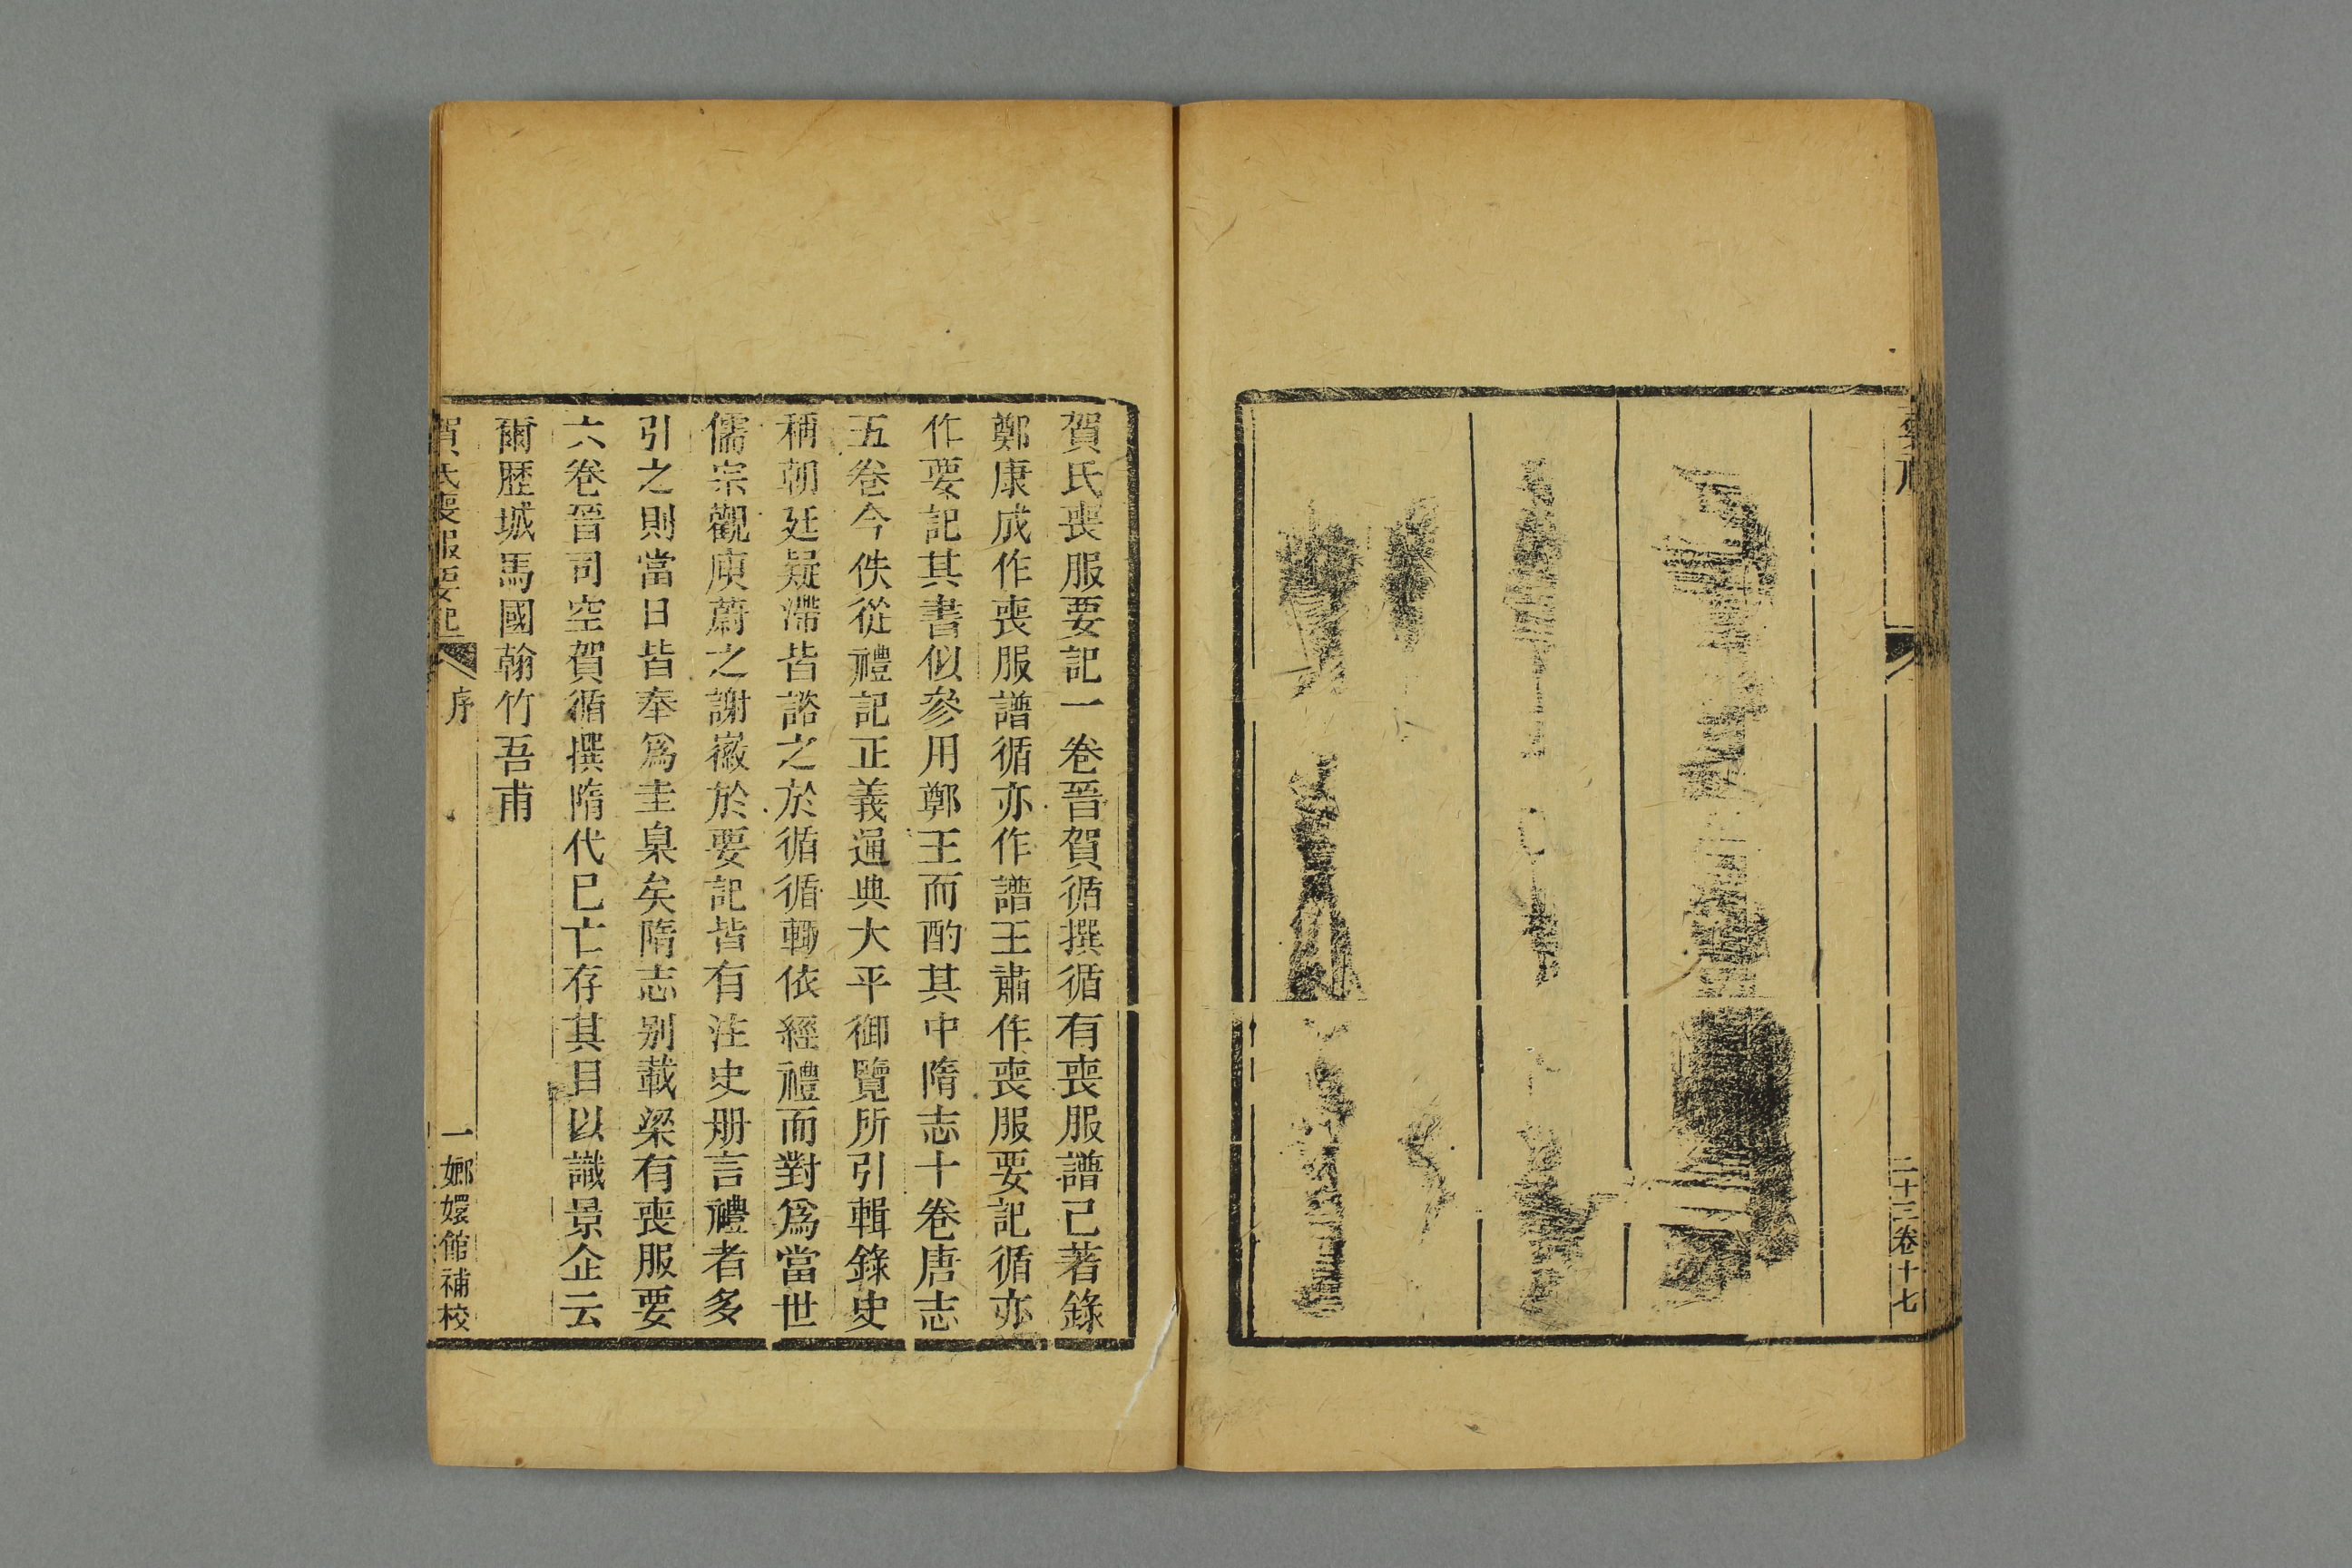 二十三卷十七
賀氏喪服要記一卷晉賀循撰循有喪服譜己著錄
鄭康成作喪服譜循亦作譜王肅作喪服要記循亦
作要記其書似參用鄭王而酌其中隋志十卷唐志
五卷今佚從禮記正義通典大平御覽所引輯錄史
稱朝廷疑滯皆諮之於循循輒依經禮而對爲當世
儒宗觀庾蔚之謝徽於要記皆有注史册言禮者多
引之則當日皆奉爲圭臬矣隋志别載梁有喪服要
六卷晉司空賀循撰隋代已亡存其目以識景企云
爾歷城馬國翰竹吾甫
賀氏喪服要記 序 一 嫏嬛館補校